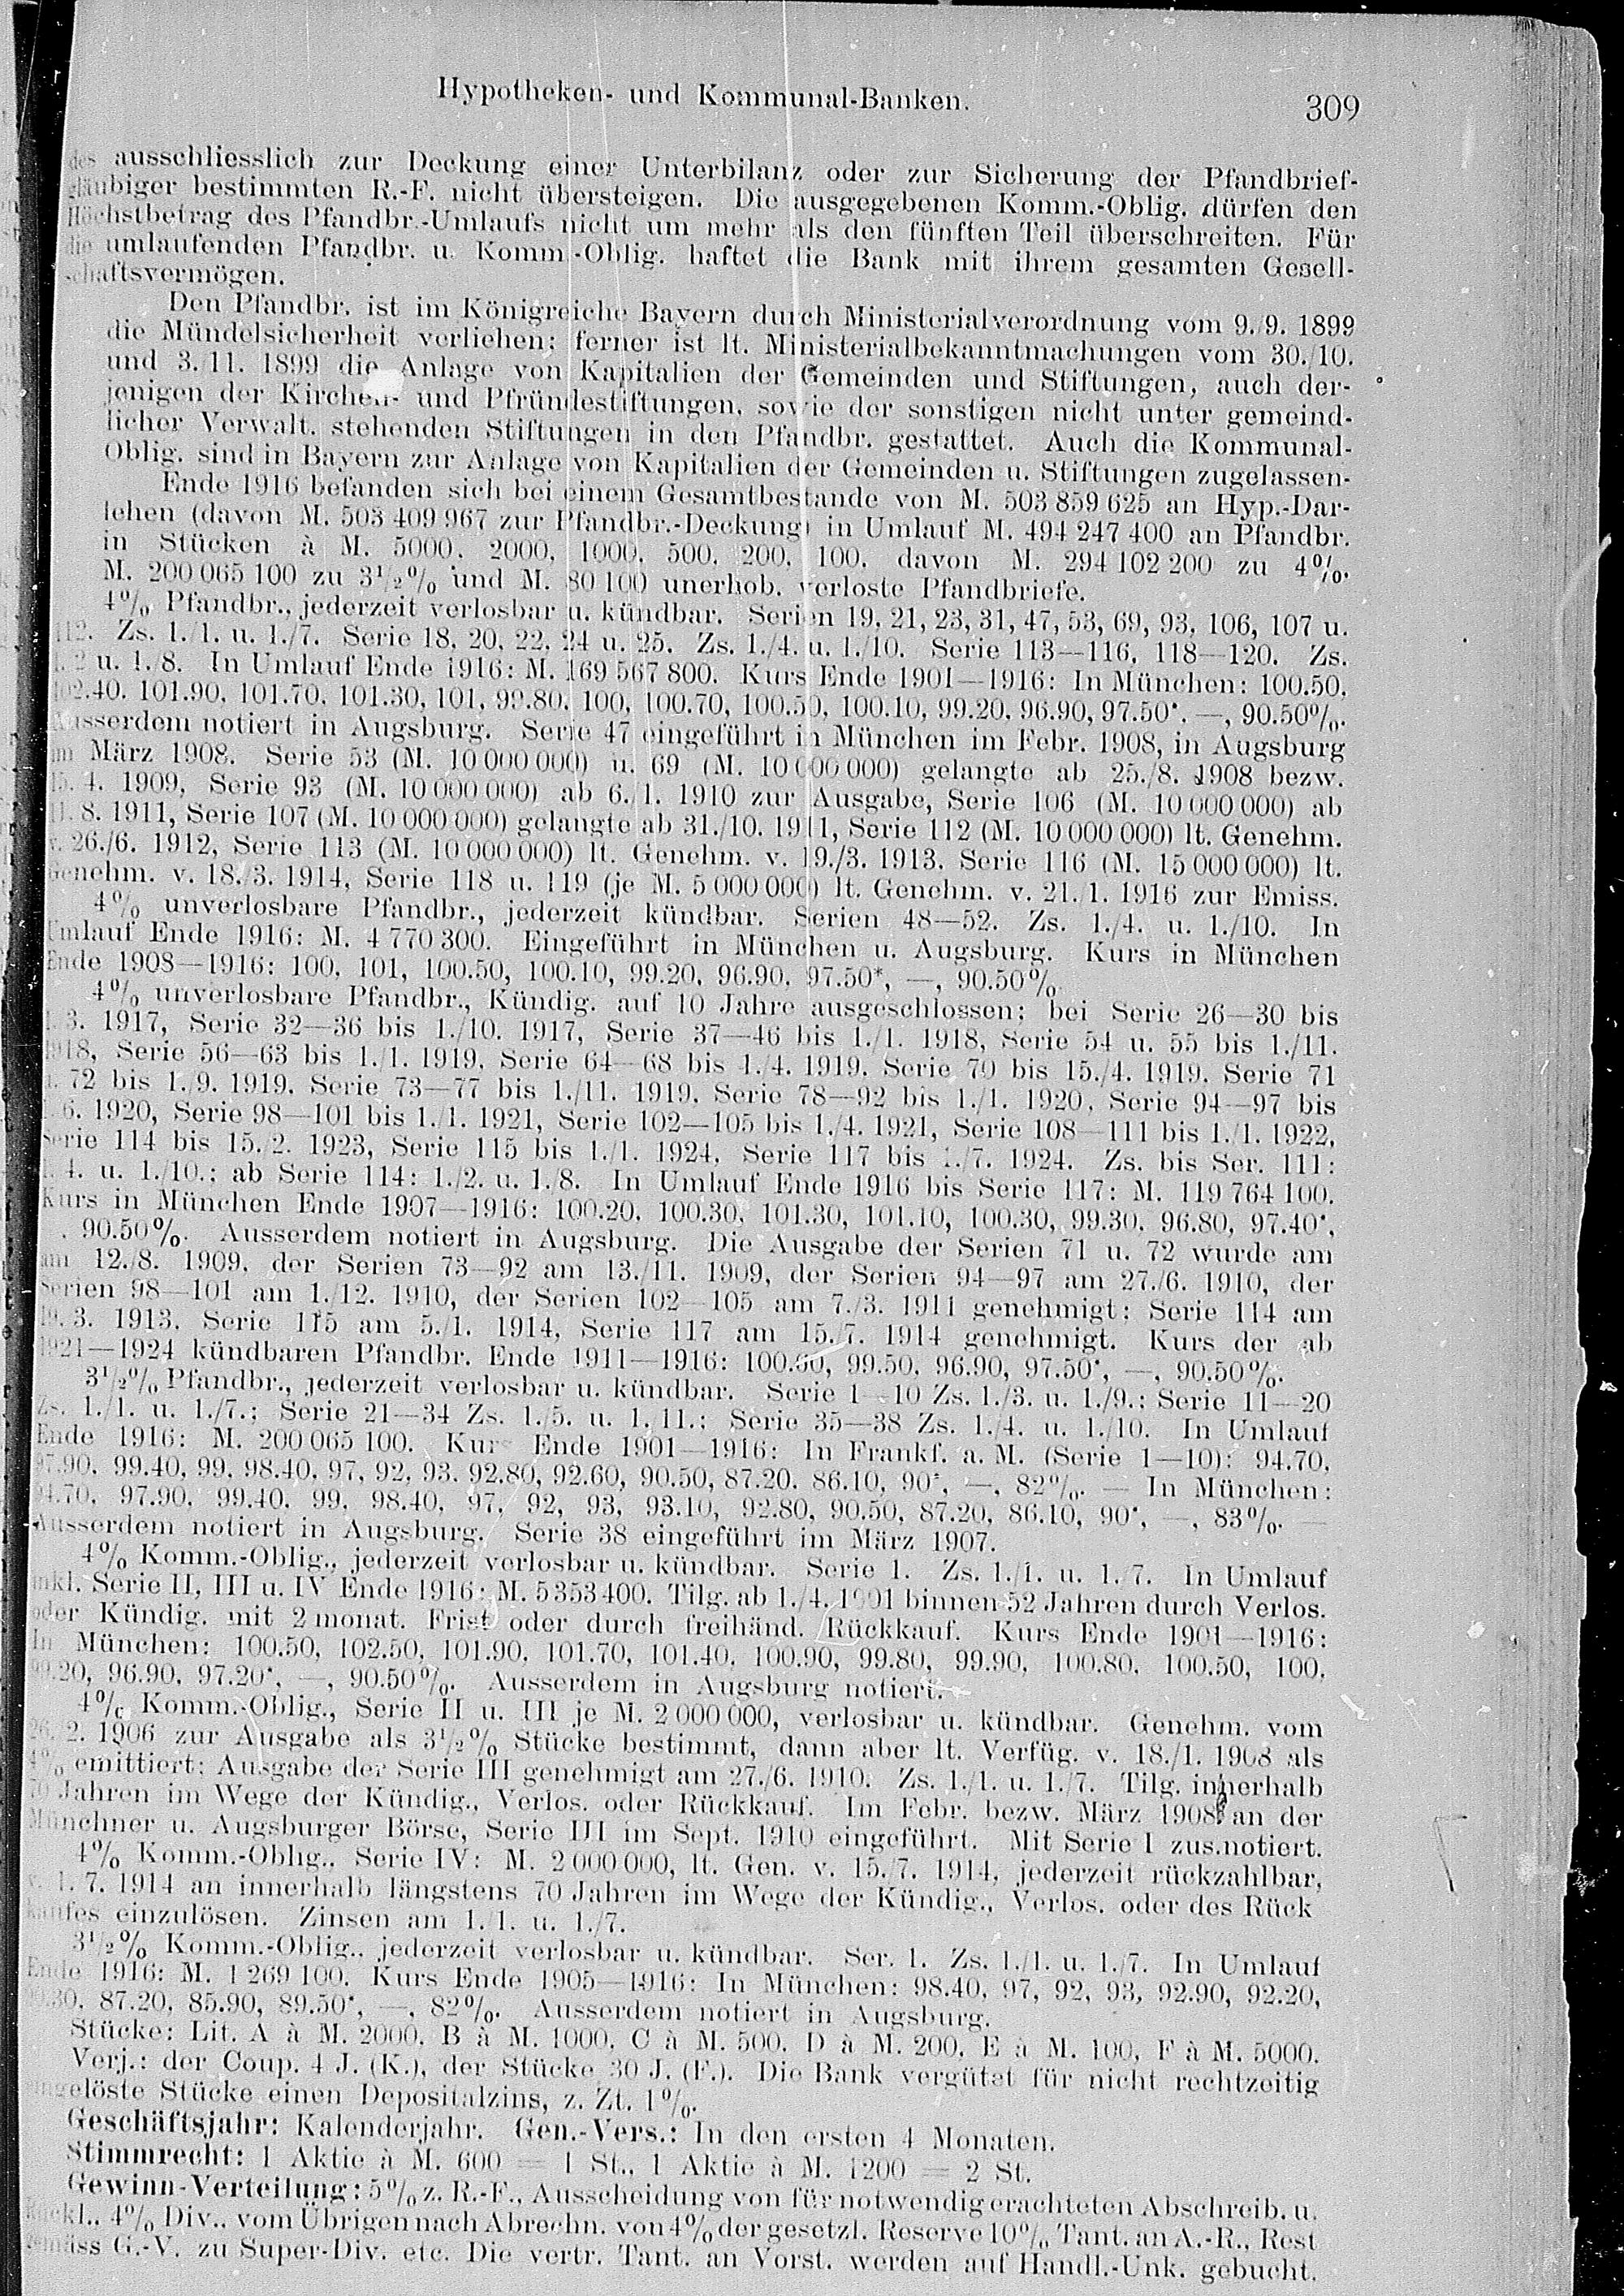 Hypotheken- und Kommunal-Banken. 309
des ausschliesslich zur Deckung einer Unterbilanz oder zur Sicherung der Pfandbrief-
gläubiger bestimmten R.-F. nicht übersteigen. Die ausgegebenen Komm.-Oblig. dürfen den
Höchstbetrag des Pfandbr.-Umlaufs nicht um mehr als den fünften Teil überschreiten. Für
die umlaufenden Pfandbr. u. Komm.-Oblig. haftet die Bank mit ihrem gesamten Gesell-
schaftsvermögen.
Den Pfandbr. ist im Königreiche Bayern durch Ministerialverordnung vom 9./9. 1899
die Mündelsicherheit verliehen; ferner ist lt. Ministerialbekanntmachungen vom 30./10.
und 3./11. 1899 die Anlage von Kapitalien der Gemeinden und Stiftungen, auch der-
jenigen der Kirchen- und Pfründestiftungen, sowie der sonstigen nicht unter gemeind-
licher Verwalt. stehenden Stiftungen in den Pfandbr. gestattet. Auch die Kommunal-
Oblig. sind in Bayern zur Anlage von Kapitalien der Gemeinden u. Stiftungen zugelassen.
Ende 1916 befanden sich bei einem Gesamtbestande von M. 503 859 625 an Hyp.-Dar-
lehen (davon M. 503 409 967 zur Pfandbr.-Deckung) in Umlauf M. 494 247 400 an Pfandbr.
in Stücken à M. 5000, 2000, 1000, 500, 200, 100, davon M. 294 102 200 zu 4%,
M. 200 065 100 zu 3½% und M. 80 100 unerhob. verloste Pfandbriefe.
4% Pfandbr., jederzeit verlosbar u. kündbar. Serien 19, 21, 23, 31, 47, 53, 69, 93, 106, 107 u.
112. Zs. 1./1. u. 1./7. Serie 18, 20, 22, 24 u. 25. Zs. 1./4. u. 1./10. Serie 113—116, 118—120. Zs.
1./2 u. 1./8. In Umlauf Ende 1916: M. 169 567 800. Kurs Ende 1901—1916: In München: 100.50,
102.40, 101.90, 101.70, 101.30, 101, 99.80, 100, 100.70, 100.50, 100.10, 99.20, 96.90, 97.50*, —, 90.50%.
Ausserdem notiert in Augsburg. Serie 47 eingeführt in München im Febr. 1908, in Augsburg
im März 1908. Serie 53 (M. 10 000 000) u. 69 (M. 10 000 000) gelangte ab 25./8. 1908 bezw.
15. 4. 1909, Serie 93 (M. 10 000 000) ab 6./1. 1910 zur Ausgabe, Serie 106 (M. 10 000 000) ab
8. 1911, Serie 107 (M. 10 000 000) gelangte ab 31./10. 1911, Serie 112 (M. 10 000 000) lt. Genehm.
v. 26./6. 1912, Serie 113 (M. 10 000 000) lt. Genehm. v. 19./3. 1913, Serie 116 (M. 15 000 000) lt.
Genehm. v. 18./3. 1914, Serie 118 u. 119 (je M. 5 000 000) lt. Genehm. v. 21./1. 1916 zur Emiss.
4% unverlosbare Pfandbr., jederzeit kündbar. Serien 48—52. Zs. 1./4. u. 1./10. In
Umlauf Ende 1916: M. 4 770 300. Eingeführt in München u. Augsburg. Kurs in München
Ende 1908—1916: 100, 101, 100.50, 100.10, 99.20, 96.90, 97.50*, —, 90.50%.
4% unverlosbare Pfandbr., Kündig. auf 10 Jahre ausgeschlossen; bei Serie 26—30 bis
3. 1917, Serie 32—36 bis 1./10. 1917, Serie 37—46 bis 1./1. 1918, Serie 54 u. 55 bis 1./11.
1918, Serie 56—63 bis 1./1. 1919, Serie 64—68 bis 1./4. 1919, Serie 70 bis 15./4. 1919, Serie 71
u. 72 bis 1./9. 1919, Serie 73—77 bis 1./11. 1919, Serie 78—92 bis 1./1. 1920, Serie 94—97 bis
6. 1920, Serie 98—101 bis 1./1. 1921, Serie 102—105 bis 1./4. 1921, Serie 108—111 bis 1./1. 1922,
Serie 114 bis 15./2. 1923, Serie 115 bis 1./1. 1924, Serie 117 bis 1./7. 1924. Zs. bis Ser. 111:
4. u. 1./10.; ab Serie 114: 1./2. u. 1./8. In Umlauf Ende 1916 bis Serie 117: M. 119 764 100.
Kurs in München Ende 1907—1916: 100.20, 100.30, 101.30, 101.10, 100.30, 99.30, 96.80, 97.40*,
90.50%. Ausserdem notiert in Augsburg. Die Ausgabe der Serien 71 u. 72 wurde am
am 12./8. 1909, der Serien 73—92 am 13./11. 1909, der Serien 94—97 am 27./6. 1910, der
Serien 98—101 am 1./12. 1910, der Serien 102—105 am 7./3. 1911 genehmigt; Serie 114 am
19. 3. 1913, Serie 115 am 5./1. 1914, Serie 117 am 15./7. 1914 genehmigt. Kurs der ab
1921—1924 kündbaren Pfandbr. Ende 1911—1916: 100.60, 99.50, 96.90, 97.50*, —, 90.50%.
3½% Pfandbr., jederzeit verlosbar u. kündbar. Serie 1—10 Zs. 1./3. u. 1./9.; Serie 11—20
Zs. 1./1. u. 1./7.; Serie 21—34 Zs. 1./5. u. 1./11.; Serie 35—38 Zs. 1./4. u. 1./10. In Umlauf
Ende 1916: M. 200 065 100. Kurs Ende 1901—1916: In Frankf. a. M. (Serie 1—10): 94.70,
97.90, 99.40, 99, 98.40, 97, 92, 93, 92.80, 92.60, 90.50, 87.20, 86.10, 90*, —, 82%. — In München:
94.70, 97.90, 99.40, 99, 98.40, 97, 92, 93, 93.10, 92.80, 90.50, 87.20, 86.10, 90*, —, 83%. —
Ausserdem notiert in Augsburg. Serie 38 eingeführt im März 1907.
4% Komm.-Oblig., jederzeit verlosbar u. kündbar. Serie 1. Zs. 1./1. u. 1./7. In Umlauf
inkl. Serie II, III u. IV Ende 1916: M. 5 353 400. Tilg. ab 1./4. 1901 binnen 52 Jahren durch Verlos.
oder Kündig. mit 2 monat. Frist oder durch freihänd. Rückkauf. Kurs Ende 1901—1916:
In München: 100.50, 102.50, 101.90, 101.70, 101.40, 100.90, 99.80, 99.90, 100.80, 100.50, 100,
99.20, 96.90, 97.20*, —, 90.50%. Ausserdem in Augsburg notiert.
4% Komm.-Oblig., Serie II u. III je M. 2 000 000, verlosbar u. kündbar. Genehm. vom
26. 2. 1906 zur Ausgabe als 3½% Stücke bestimmt, dann aber lt. Verfüg. v. 18./1. 1908 als
4% emittiert; Ausgabe der Serie III genehmigt am 27./6. 1910. Zs. 1./1. u. 1./7. Tilg. innerhalb
70 Jahren im Wege der Kündig., Verlos. oder Rückkauf. Im Febr. bezw. März 1908 an der
Münchner u. Augsburger Börse, Serie III im Sept. 1910 eingeführt. Mit Serie I zus.notiert.
4% Komm.-Oblig., Serie IV: M. 2 000 000, lt. Gen. v. 15./7. 1914, jederzeit rückzahlbar,
v. 1. 7. 1914 an innerhalb längstens 70 Jahren im Wege der Kündig., Verlos. oder des Rück
kaufes einzulösen. Zinsen am 1./1. u. 1./7.
3½% Komm.-Oblig., jederzeit verlosbar u. kündbar. Ser. 1. Zs. 1./1. u. 1./7. In Umlauf
Ende 1916: M. 1 269 100. Kurs Ende 1905—1916: In München: 98.40, 97, 92, 93, 92.90, 92.20,
87.20, 85.90, 89.50*, —, 82%. Ausserdem notiert in Augsburg.
Stücke: Lit. A à M. 2000, B à M. 1000, C à M. 500, D à M. 200, E à M. 100, F à M. 5000.
Verj.: der Coup. 4 J. (K.), der Stücke 30 J. (F.). Die Bank vergütet für nicht rechtzeitig
eingelöste Stücke einen Depositalzins, z. Zt. 1%.
Geschäftsjahr: Kalenderjahr. Gen.-Vers.: In den ersten 4 Monaten.
Stimmrecht: 1 Aktie à M. 600 = 1 St., 1 Aktie à M. 1200 = 2 St.
Gewinn-Verteilung: 5% z. R.-F., Ausscheidung von für notwendig erachteten Abschreib. u.
Rückl., 4% Div., vom Übrigen nach Abrechn. von 4% der gesetzl. Reserve 10% Tant. an A.-R., Rest
gemäss G.-V. zu Super-Div. etc. Die vertr. Tant. an Vorst. werden auf Handl.-Unk. gebucht.